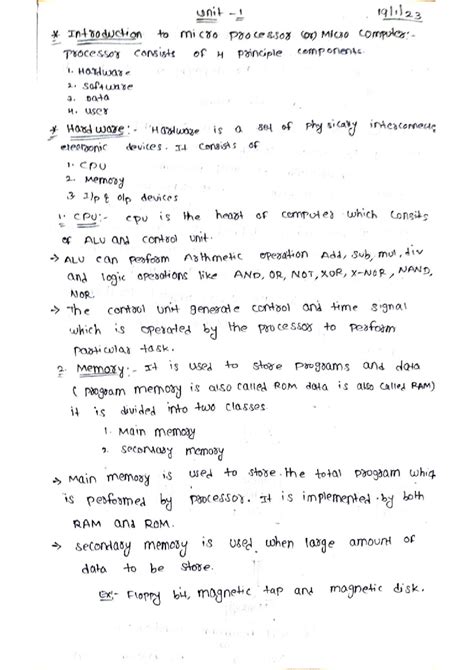 unit - 1
19/1/23
* Introduction to micro processor (or) Micro computer:-
Processor consists of 4 principle components.
1. Hardware
2. Software
3. Data
4. User
* Hardware:- Hardware is a set of physicaly interconnec
electronic devices. It consists of
1. CPU
2. Memory
3 I/p & o/p devices
1. CPU:- CPU is the heart of computer which consits
of ALU and control unit.
→ ALU can perform Arithmetic operation Add, sub, mul, div
and logic operations like AND, OR, NOT, XOR, X-NOR, NAND,
NOR.
→ The control unit generate control and time signal
which is operated by the processor to perform
particular task.
2. Memory:- It is used to store programs and data
( program memory is also called ROM data is also called RAM)
it is divided into two classes.
1. Main memory
2. secondary memory
→ Main memory is used to store the total program whic
is performed by processor. It is implemented by both
RAM and ROM.
→ secondary memory is used when large amount of
data to be store.
Ex:- Floppy bit, magnetic tap and magnetic disk.